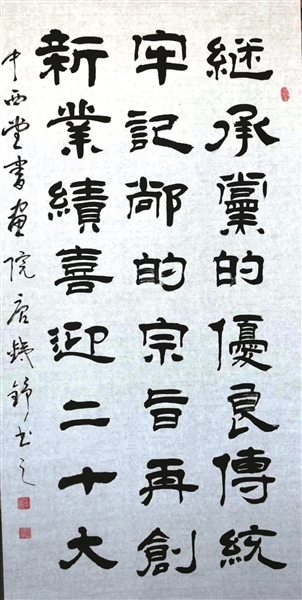 継承黨的優良傳統
牢記䣊的宗旨再創
新業績喜迎二十大
中西堂書畫院唐錚书之